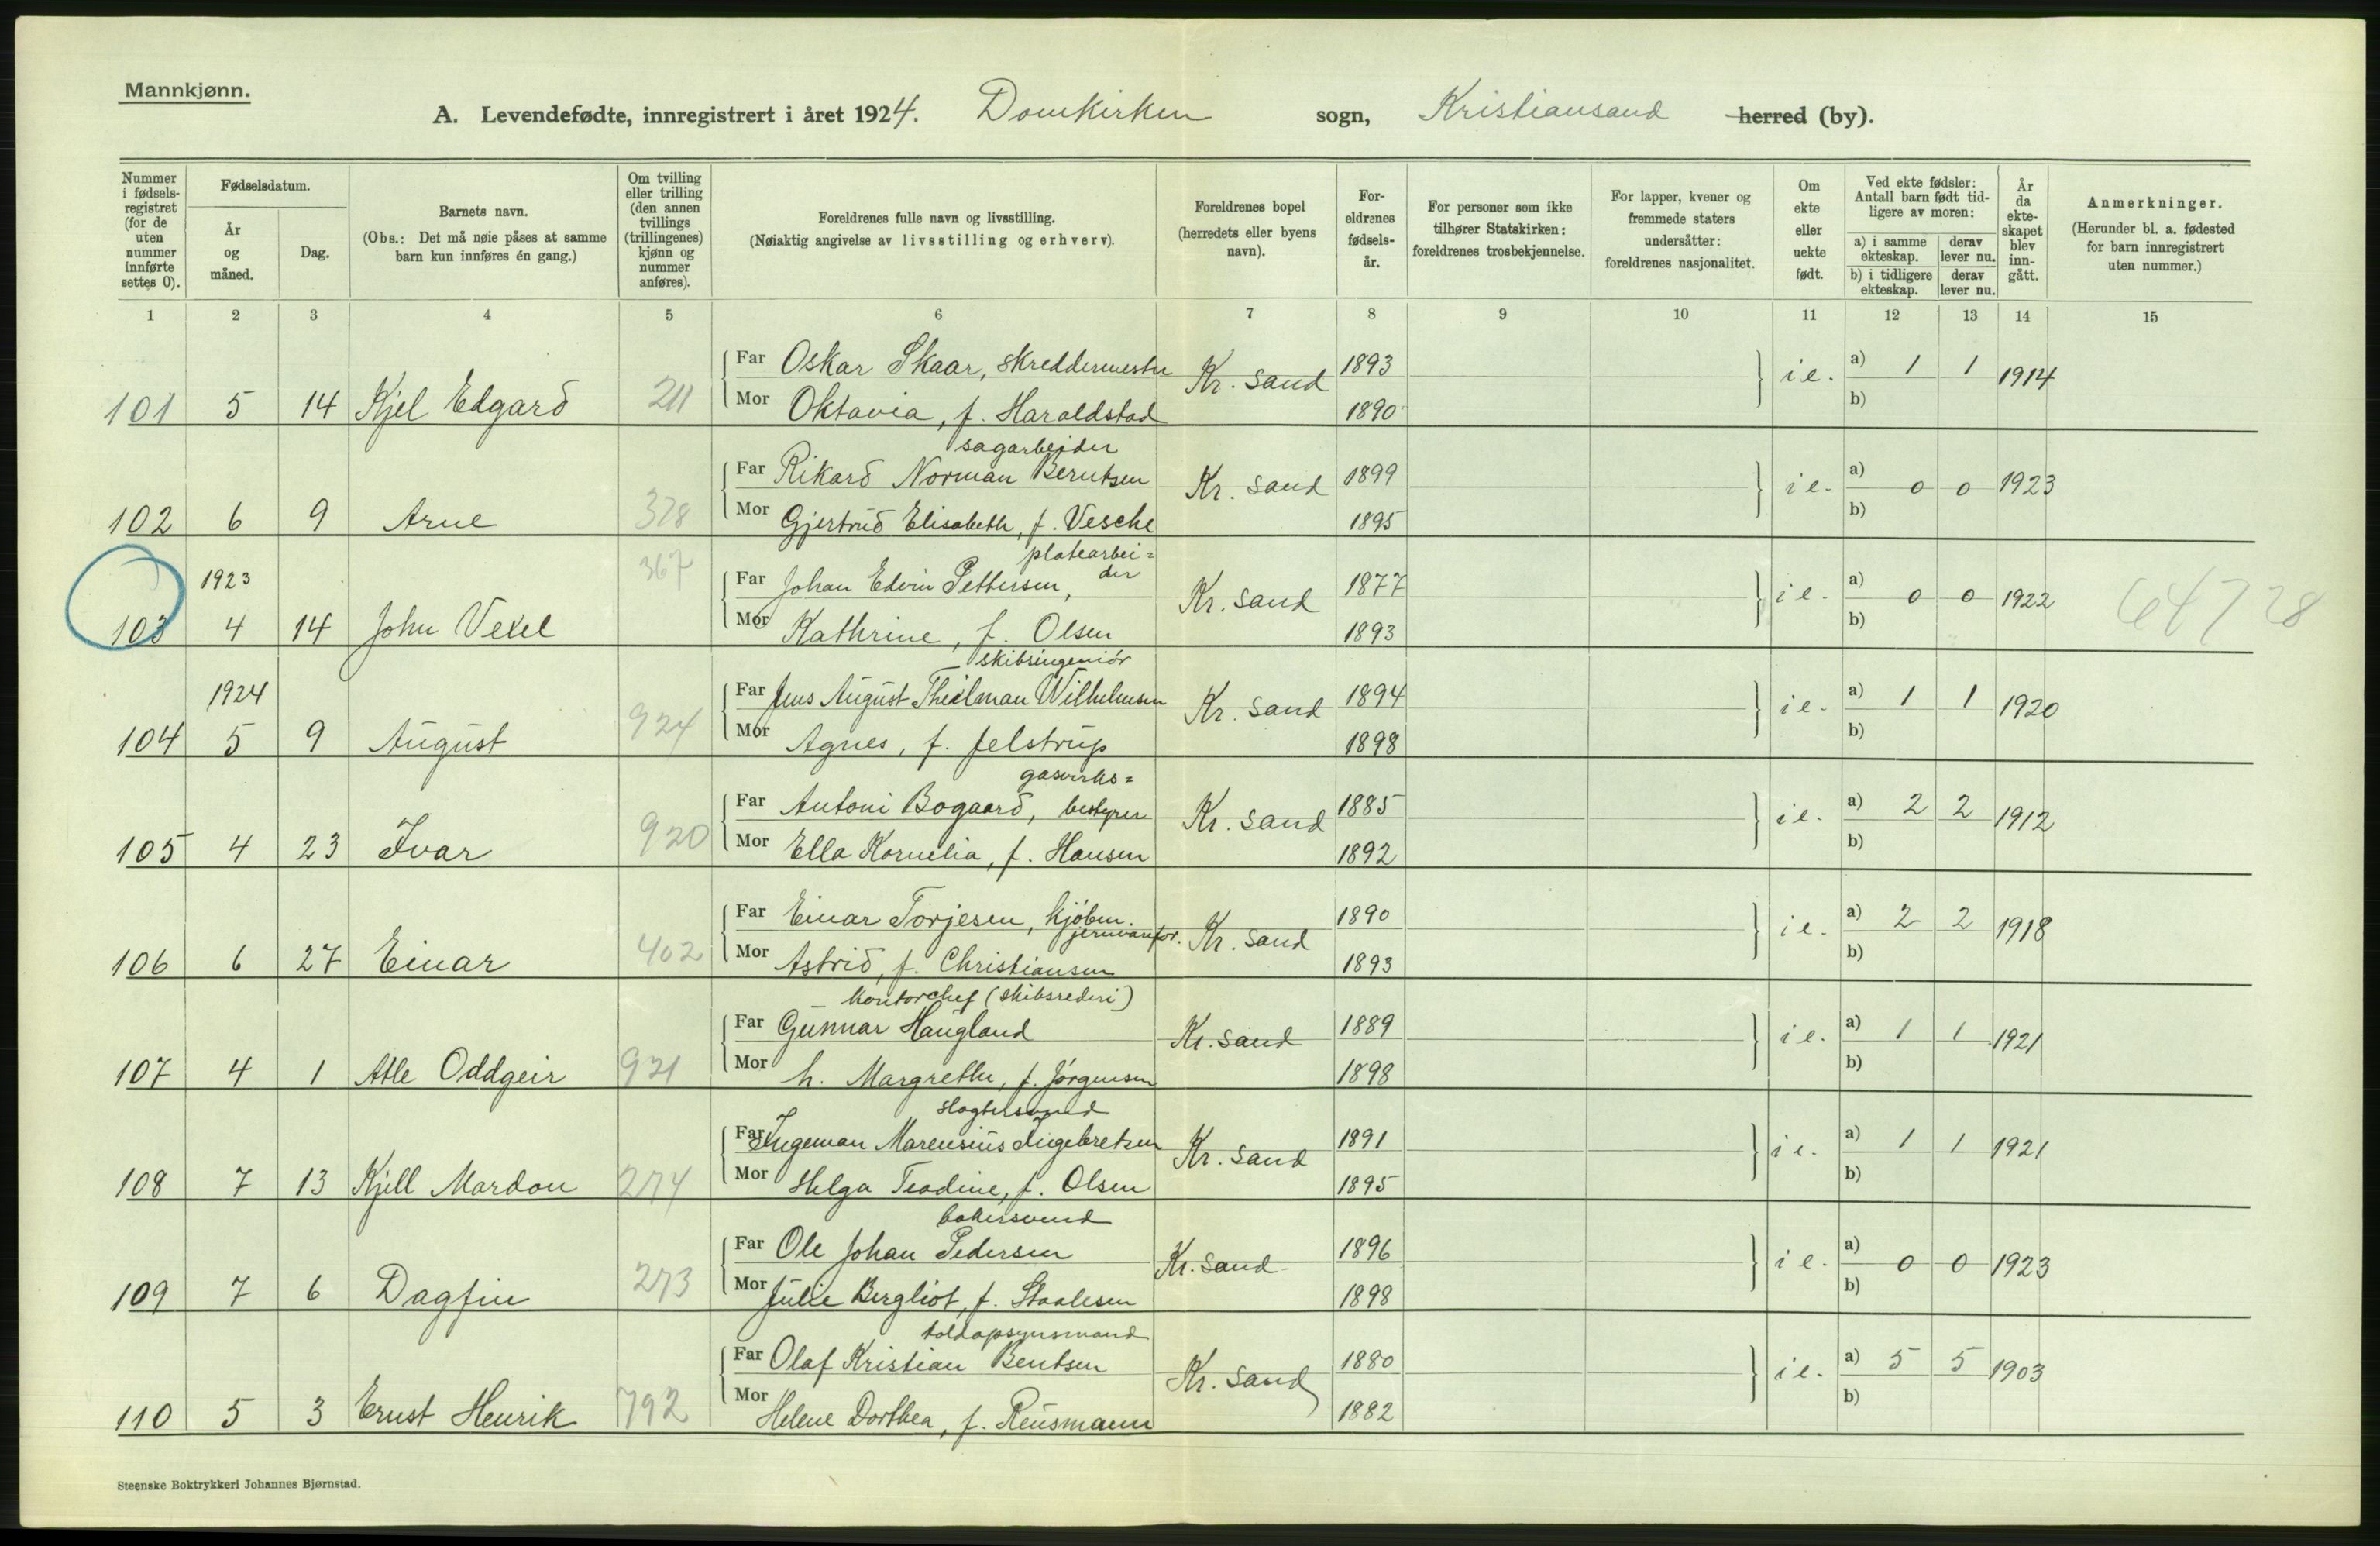 Mannkjønn.
A. Levendefødte, innregistrert i året 1924. Domkirken sogn, Kristiansand herred (by).
Nummer i fødselsregistret (for de uten nummer innførte settes 0).
Fødselsdatum.
År og måned.
Dag.
Barnets navn.
(Obs.: Det må nøie påses at samme barn kun innføres én gang.)
Om tvilling eller trilling (den annen tvillings (trillingenes) kjønn og nummer anføres).
Foreldrenes fulle navn og livsstilling.
(Nøiaktig angivelse av livsstilling og erhverv).
Foreldrenes bopel (herredets eller byens navn).
For-eldrenes fødsels-år.
For personer som ikke tilhører Statskirken: foreldrenes trosbekjennelse.
For lapper, kvener og fremmede staters undersåtter: foreldrenes nasjonalitet.
Om ekte eller uekte født.
Ved ekte fødsler: Antall barn født tidligere av moren:
a) i samme ekteskap.
derav lever nu.
b) i tidligere ekteskap.
derav lever nu.
År da ekte-skapet blev inn-gått.
Anmerkninger.
(Herunder bl. a. fødested for barn innregistrert uten nummer.)
1 2 3 4 5 6 7 8 9 10 11 12 13 14 15
Far Oskar Skaar, skreddermester 1893 a) 1 1
101 5 14 Kjel Edgard 211 Kr. sand i e. 1914
Mor Oktavia, f. Haraldstad 1890 b)
sagarbejder
Far Rikard Norman Berntsen 1899 a)
102 6 9 Arne 378 Kr. sand i e. 0 0 1923
Mor Gjertrud Elisabeth, f. Vesche 1895 b)
platearbei=
1923 367 Far Johan Edvin Pettersen, der 1877 a)
103 4 14 John Vexel Kr. sand i e. 0 0 1922 64728
Mor Kathrine, f. Olsen 1893 b)
skibsingeniør
1924 Far Jens August Thielman Wilhelmsen 1894 a) 1 1
104 5 9 August 924 Kr. sand i e. 1920
Mor Agnes, f. Jelstrup 1898 b)
gasverks=
Far Antoni Bogaard, bestyrer 1885 a) 2 2
105 4 23 Ivar 920 Kr. sand i e. 1912
Mor Ella Kornelia, f. Hansen 1892 b)
Far Einar Torjesen, kjøbm. 1890 a) 2 2
jernvarefor.
106 6 27 Einar 402 Kr. sand i e. 1918
Mor Astrid, f. Christiansen 1893 b)
kontorchef (skibsrederi)
Far Gunnar Haugland 1889 a) 1 1
107 4 1 Atle Oddgeir 921 Kr. sand i e. 1921
Mor h. Margrethe, f. Jørgensen 1898 b)
slagtersvend
Far Ingeman Marensius Ingebretsen 1891 a) 1 1
108 7 13 Kjell Mardon 274 Kr. sand i e. 1921
Mor Helga Teodine, f. Olsen 1895 b)
bakersvend
Far Ole Johan Pedersen 1896 a)
109 7 6 Dagfin 273 Kr. sand i e. 0 0 1923
Mor Julie Bergliot, f. Staalesen 1898 b)
toldopsynsmand
Far Olaf Kristian Bentsen 1880 a) 5 5
110 5 3 Ernst Henrik 792 Kr. sand i e. 1903
Mor Helene Dorthea, f. Reusmann 1882 b)
Steenske Boktrykkeri Johannes Bjørnstad.